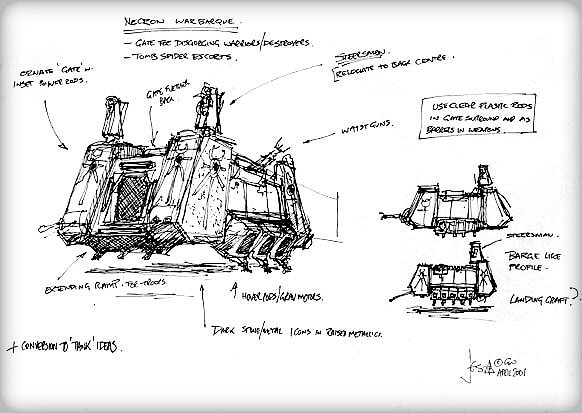 NECRON WARBARQUE.
- GATE FOR DISGORGING WARRIORS/DESTROYERS.
- TOMB SPIDER ESCORTS.
STEERSMAN.
RELOCATE TO BACK CENTRE.
ORNATE 'GATE' W.
INSET POWER RODS.
GATE FURTHER
BACK
USE CLEAR PLASTIC RODS
IN GATE SURROUND AND AS
BARRELS IN WEAPONS.
WAIST GUNS.
STEERSMAN.
BARGE LIKE
PROFILE.
LANDING CRAFT?
EXTENDING RAMP. FOR TROOPS
HOVER PODS/GRAV MOTORS.
DARK STONE/METAL ICONS IN RAISED METALLICS.
+ CONVERSION TO 'TANK' IDEAS.
© GW
APRIL 2001